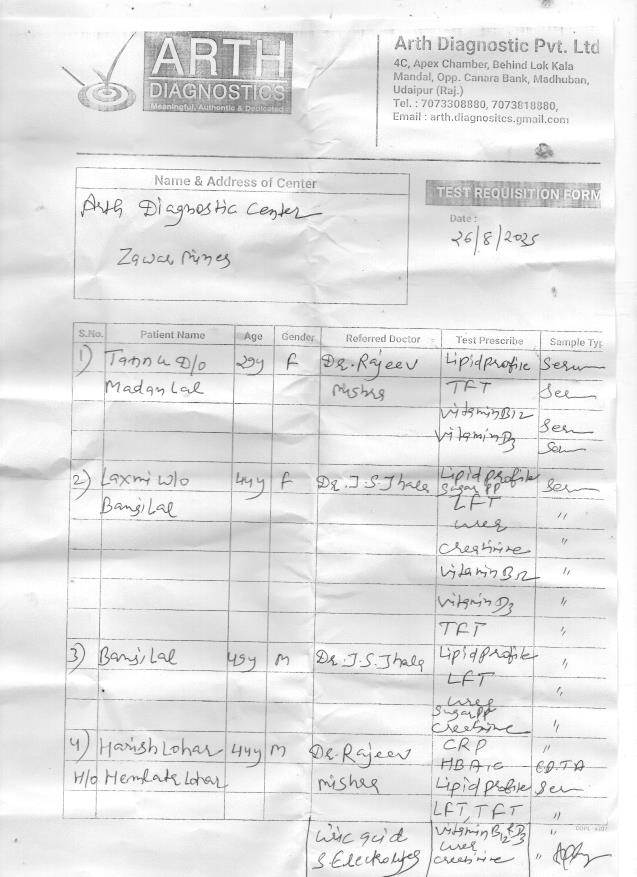 ARTH
DIAGNOSTICS
Meaningful, Authentic & Dedicated
Arth Diagnostic Pvt. Ltd
4C, Apex Chamber, Behind Lok Kala
Mandal, Opp. Canara Bank, Madhuban,
Udaipur (Raj.)
Tel. : 7073308880, 7073818880,
Email : arth.diagnositcs.gmail.com
Name & Address of Center
Arth Diagnostic Center
Zawar Mines
TEST REQUISITION FORM
Date :
26/8/2025
S.No. Patient Name Age Gender Referred Doctor Test Prescribe Sample Typ
1) Tannu D/o 29y F Dr. Rajeev Lipid profile Serum
Madan Lal Mishra TFT Ser
Vitamin B12 Ser
Vitamin D3 Ser
2) Laxmi W/o 44y F Dr. J. S. Jhala Lipid profile Serum
Sugar PP
Bansi Lal LFT "
Urea
Creatinine "
Vitamin B12 "
Vitamin D3 "
TFT "
3) Bansi Lal 45y M Dr. J. S. Jhala Lipid profile "
LFT "
Urea
Sugar PP
Creatinine "
4) Harish Lohar 44y M Dr. Rajeev CRP "
HBA1C EDTA
H/o Hemlata Lohar Mishra Lipid profile Ser
LFT, TFT "
Uric acid Vitamin B12 & D3 "
S. Electrolytes Urea
Creatinine "